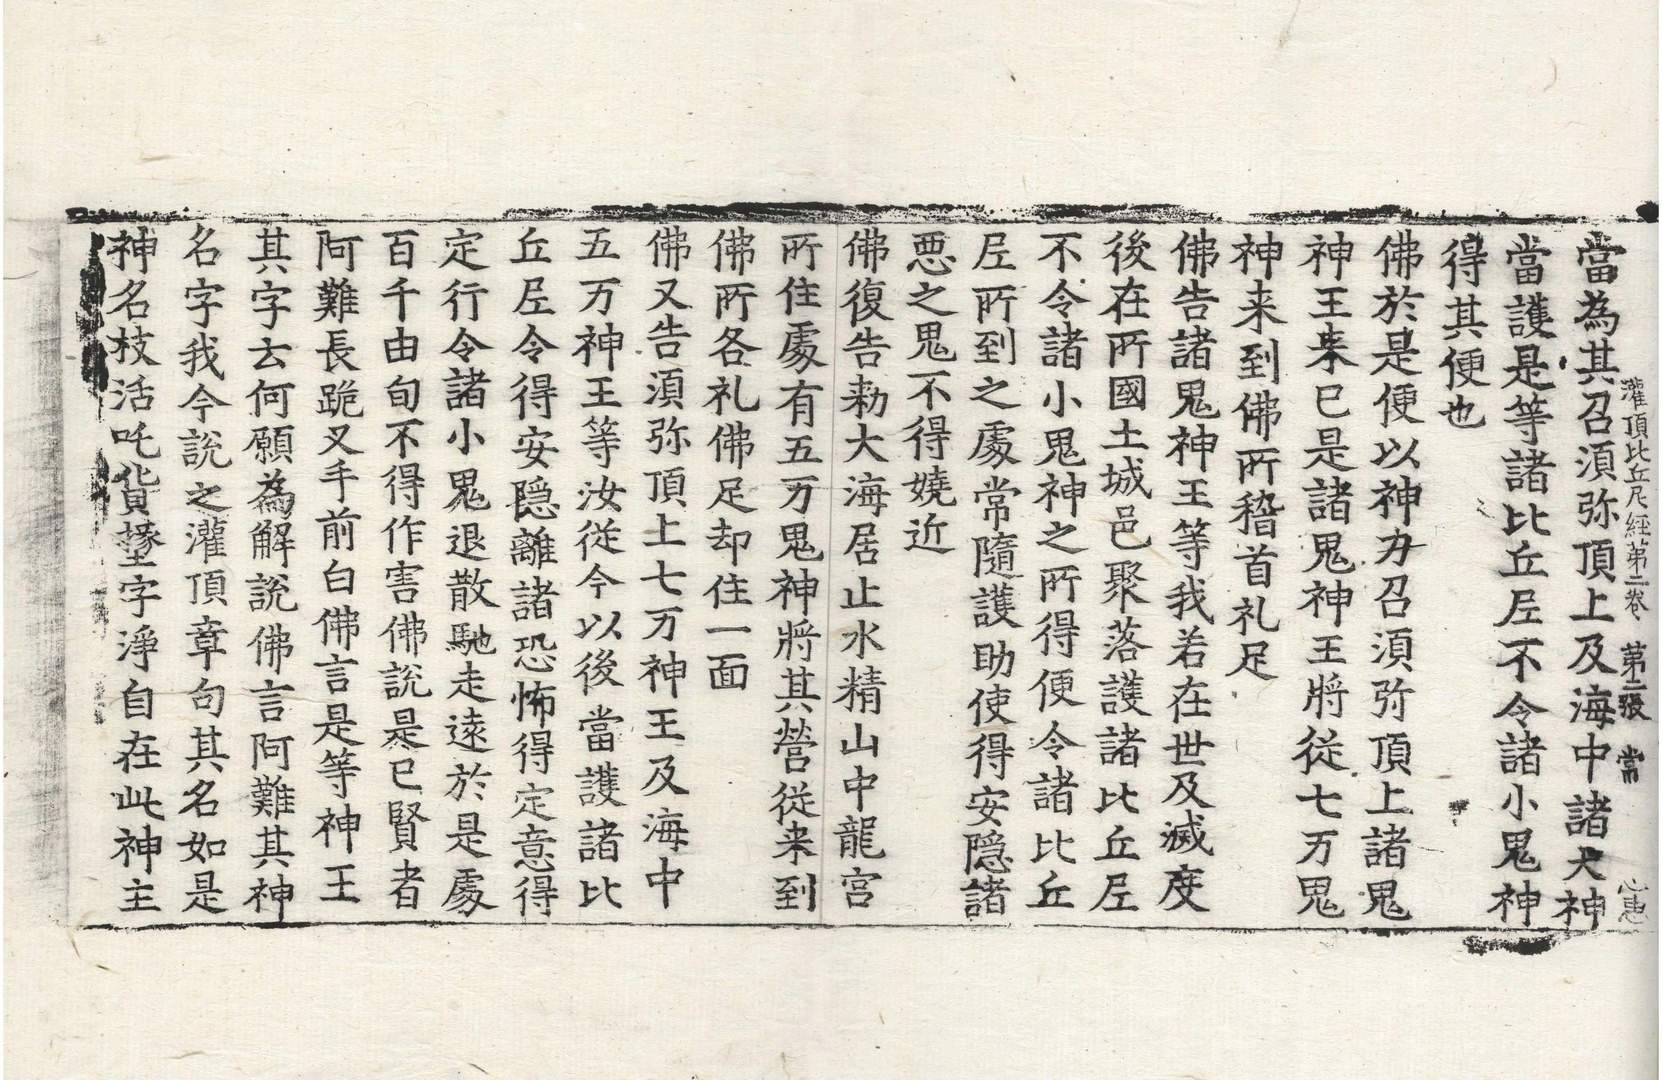 灌頂比丘尼經第二卷 第二張 常 心惠
當為其召須弥頂上及海中諸大神
當護是等諸比丘尼不令諸小鬼神
得其便也
佛於是便以神力召須弥頂上諸鬼
神王来巳是諸鬼神王將從七万鬼
神来到佛所稽首礼足
佛告諸鬼神王等我若在世及滅度
後在所國土城邑聚落護諸比丘尼
不令諸小鬼神之所得便令諸比丘
尼所到之處常隨護助使得安隱諸
惡之鬼不得嬈近
佛復告勑大海居止水精山中龍宮
所住處有五万鬼神將其營從来到
佛所各礼佛足却住一面
佛又告須弥頂上七万神王及海中
五万神王等汝從今以後當護諸比
丘尼令得安隱離諸恐怖得定意得
定行令諸小鬼退散馳走遠於是處
百千由旬不得作害佛說是已賢者
阿難長跪叉手前白佛言是等神王
其字云何願為解說佛言阿難其神
名字我今說之灌頂章句其名如是
神名枝活吒貨𡑞字淨自在此神主